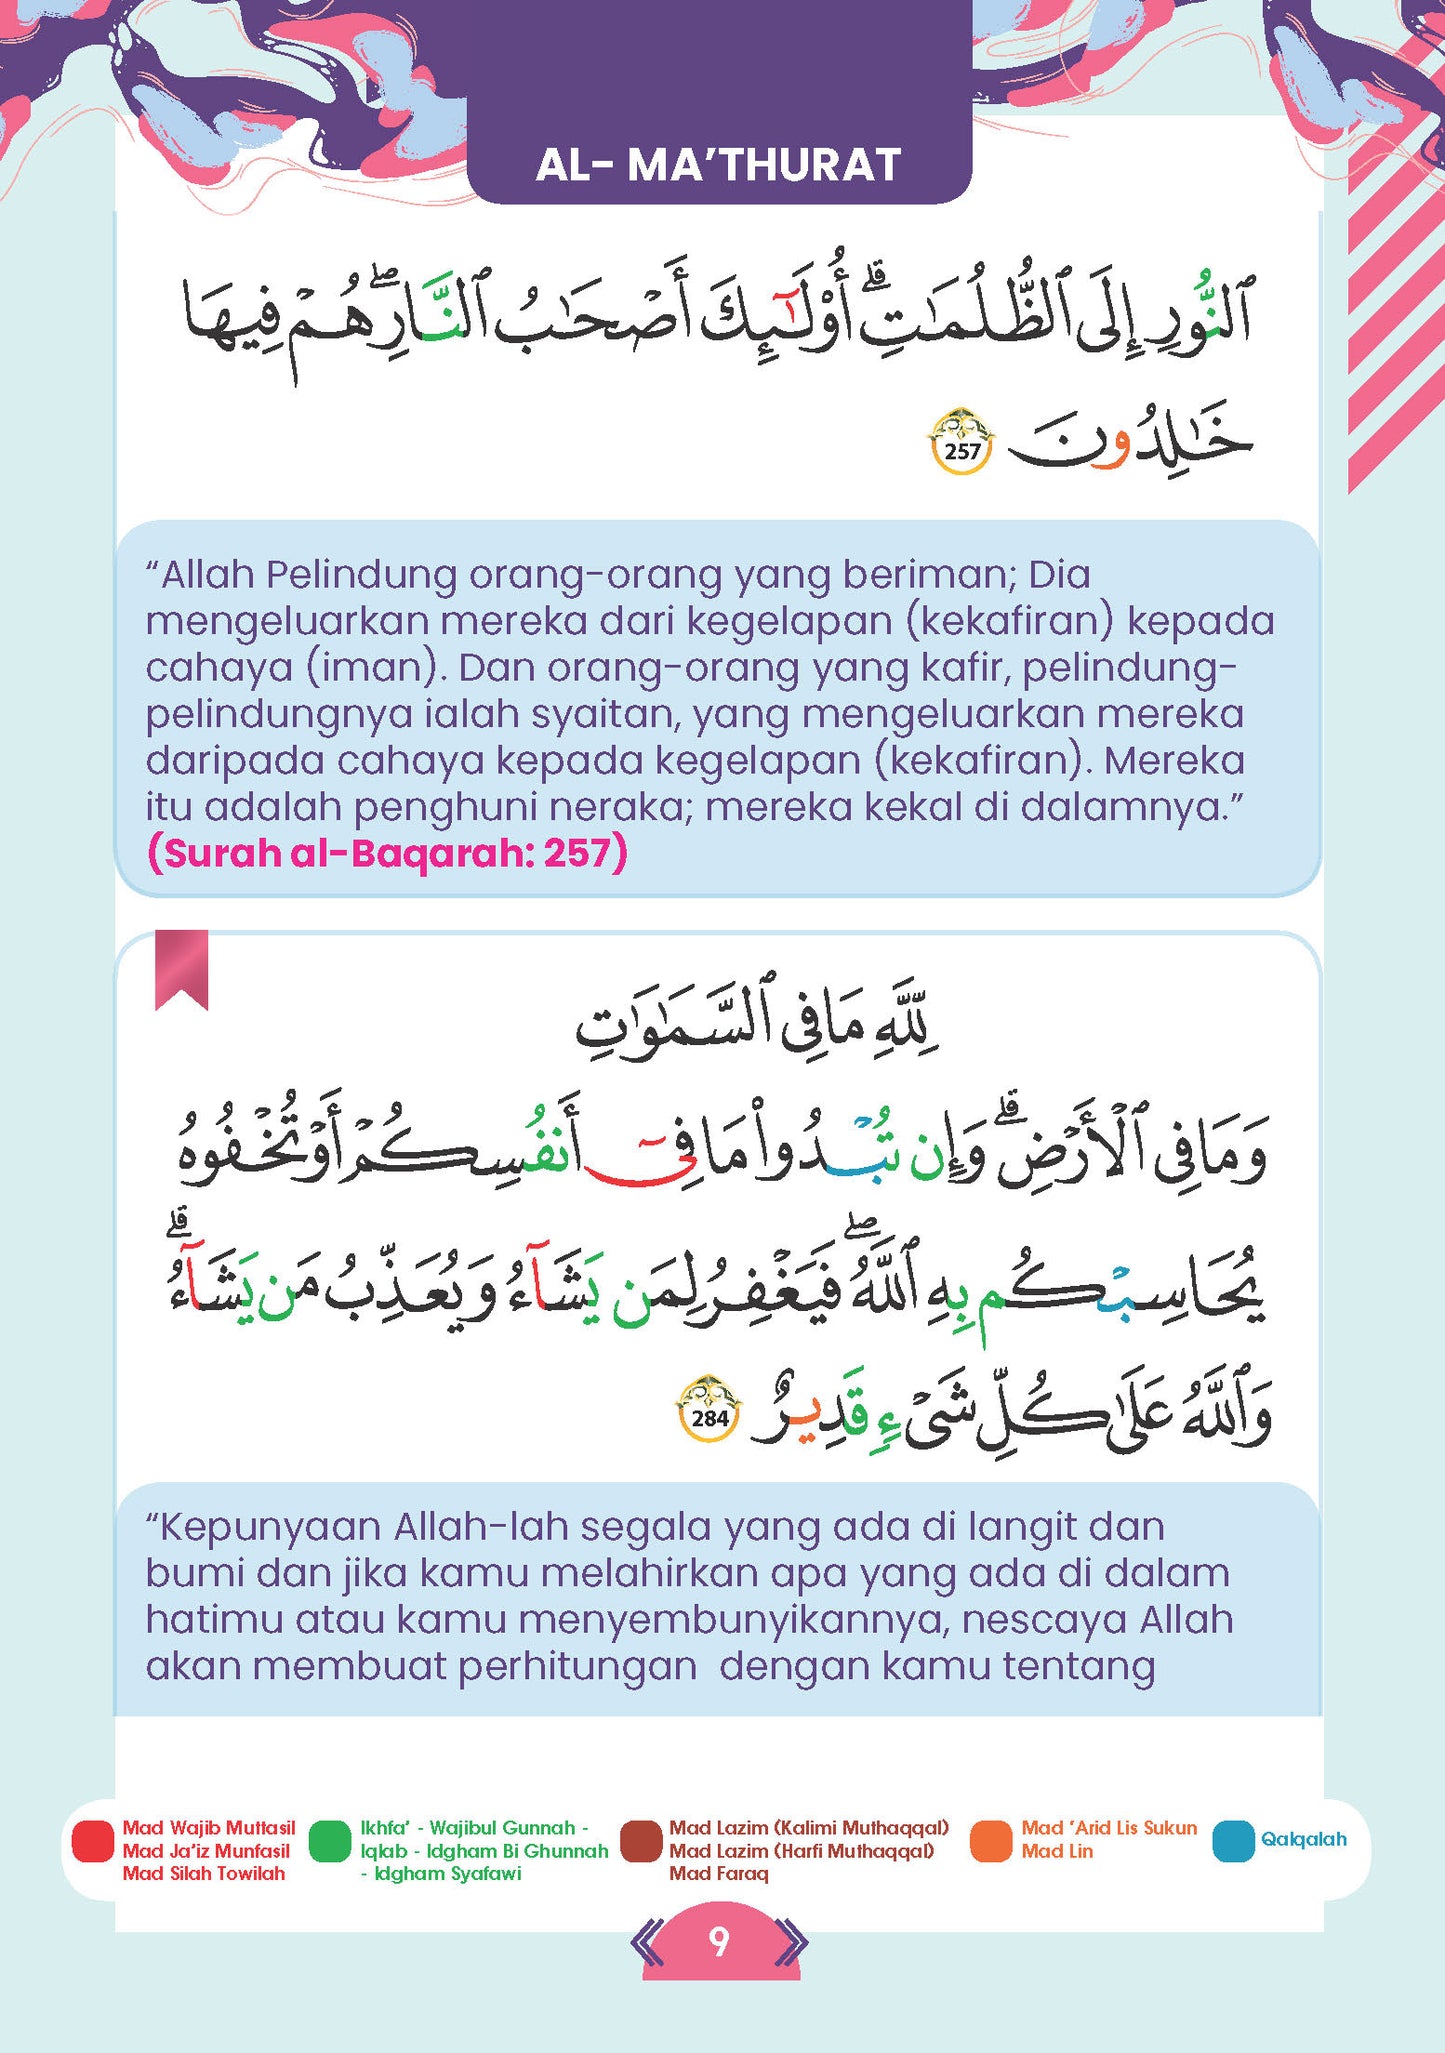 AL- MA’THURAT
ٱلنُّورِ إِلَى ٱلظُّلُمَـٰتِ ۗ أُو۟لَـٰٓئِكَ أَصْحَـٰبُ ٱلنَّارِ ۖ هُمْ فِيهَا
خَـٰلِدُونَ 257
“Allah Pelindung orang-orang yang beriman; Dia
mengeluarkan mereka dari kegelapan (kekafiran) kepada
cahaya (iman). Dan orang-orang yang kafir, pelindung-
pelindungnya ialah syaitan, yang mengeluarkan mereka
daripada cahaya kepada kegelapan (kekafiran). Mereka
itu adalah penghuni neraka; mereka kekal di dalamnya.”
(Surah al-Baqarah: 257)
لِلَّهِ مَا فِى ٱلسَّمَـٰوَٰتِ
وَمَا فِى ٱلْأَرْضِ ۗ وَإِن تُبْدُوا۟ مَا فِىٓ أَنفُسِكُمْ أَوْ تُخْفُوهُ
يُحَاسِبْكُم بِهِ ٱللَّهُ ۖ فَيَغْفِرُ لِمَن يَشَآءُ وَيُعَذِّبُ مَن يَشَآءُ ۗ
وَٱللَّهُ عَلَىٰ كُلِّ شَىْءٍ قَدِيرٌ 284
“Kepunyaan Allah-lah segala yang ada di langit dan
bumi dan jika kamu melahirkan apa yang ada di dalam
hatimu atau kamu menyembunyikannya, nescaya Allah
akan membuat perhitungan  dengan kamu tentang
Mad Wajib Muttasil
Mad Ja’iz Munfasil
Mad Silah Towilah
Ikhfa’ - Wajibul Gunnah -
Iqlab - Idgham Bi Ghunnah
- Idgham Syafawi
Mad Lazim (Kalimi Muthaqqal)
Mad Lazim (Harfi Muthaqqal)
Mad Faraq
Mad ‘Arid Lis Sukun
Mad Lin
Qalqalah
9